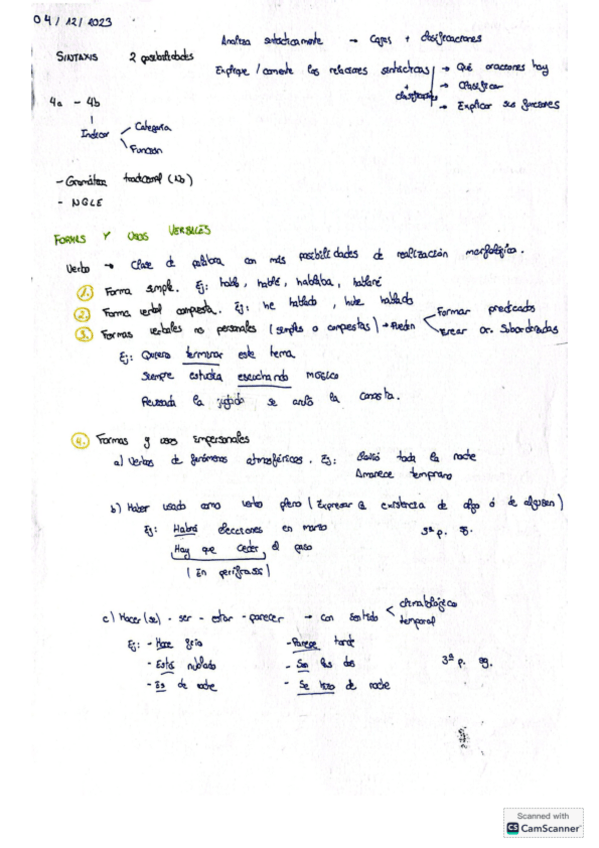 04/12/2023
Analiza sintácticamente → Cajas + clasificaciones
SINTAXIS 2 posibilidades
Explique / comente las relaciones sintácticas → Qué oraciones hay
+ clasificarlas → Clasificar
→ Explicar sus funciones
4a - 4b
Indicar
Categoría
Función
- Gramática tradicional (No)
- NGLE
FORMAS Y USOS VERBALES
Verbo → Clase de palabra con más posibilidades de realización morfológica.
1. Forma simple. Ej: hablo, hablé, hablaba, hablaré
2. Forma verbal compuesta. Ej: he hablado, hube hablado
3. Formas verbales no personales (simples o compuestas) → Pueden
Formar predicados
Crear or. Subordinadas
Ej: Quiero terminar este tema
Siempre estudia escuchando música
Revisada la se anuló la
4. Formas y usos Impersonales
a) Verbos de fenómenos atmosféricos. Ej: toda la noche
Amanece temprano
b) Haber usado como verbo pleno (Expresar la existencia de algo ó de alguien)
Ej: Habrá elecciones en marzo 3ª p. sg.
Hay que ceder el paso
(En perífrasis)
c) Hacer (se) - ser - estar - parecer → con sentido
climatológico
temporal
Ej: - Hace frío - Parece tarde
- Está nublado - Son las dos 3ª p. sg.
- Es de noche - Se hizo de noche
Scanned with
CS CamScanner